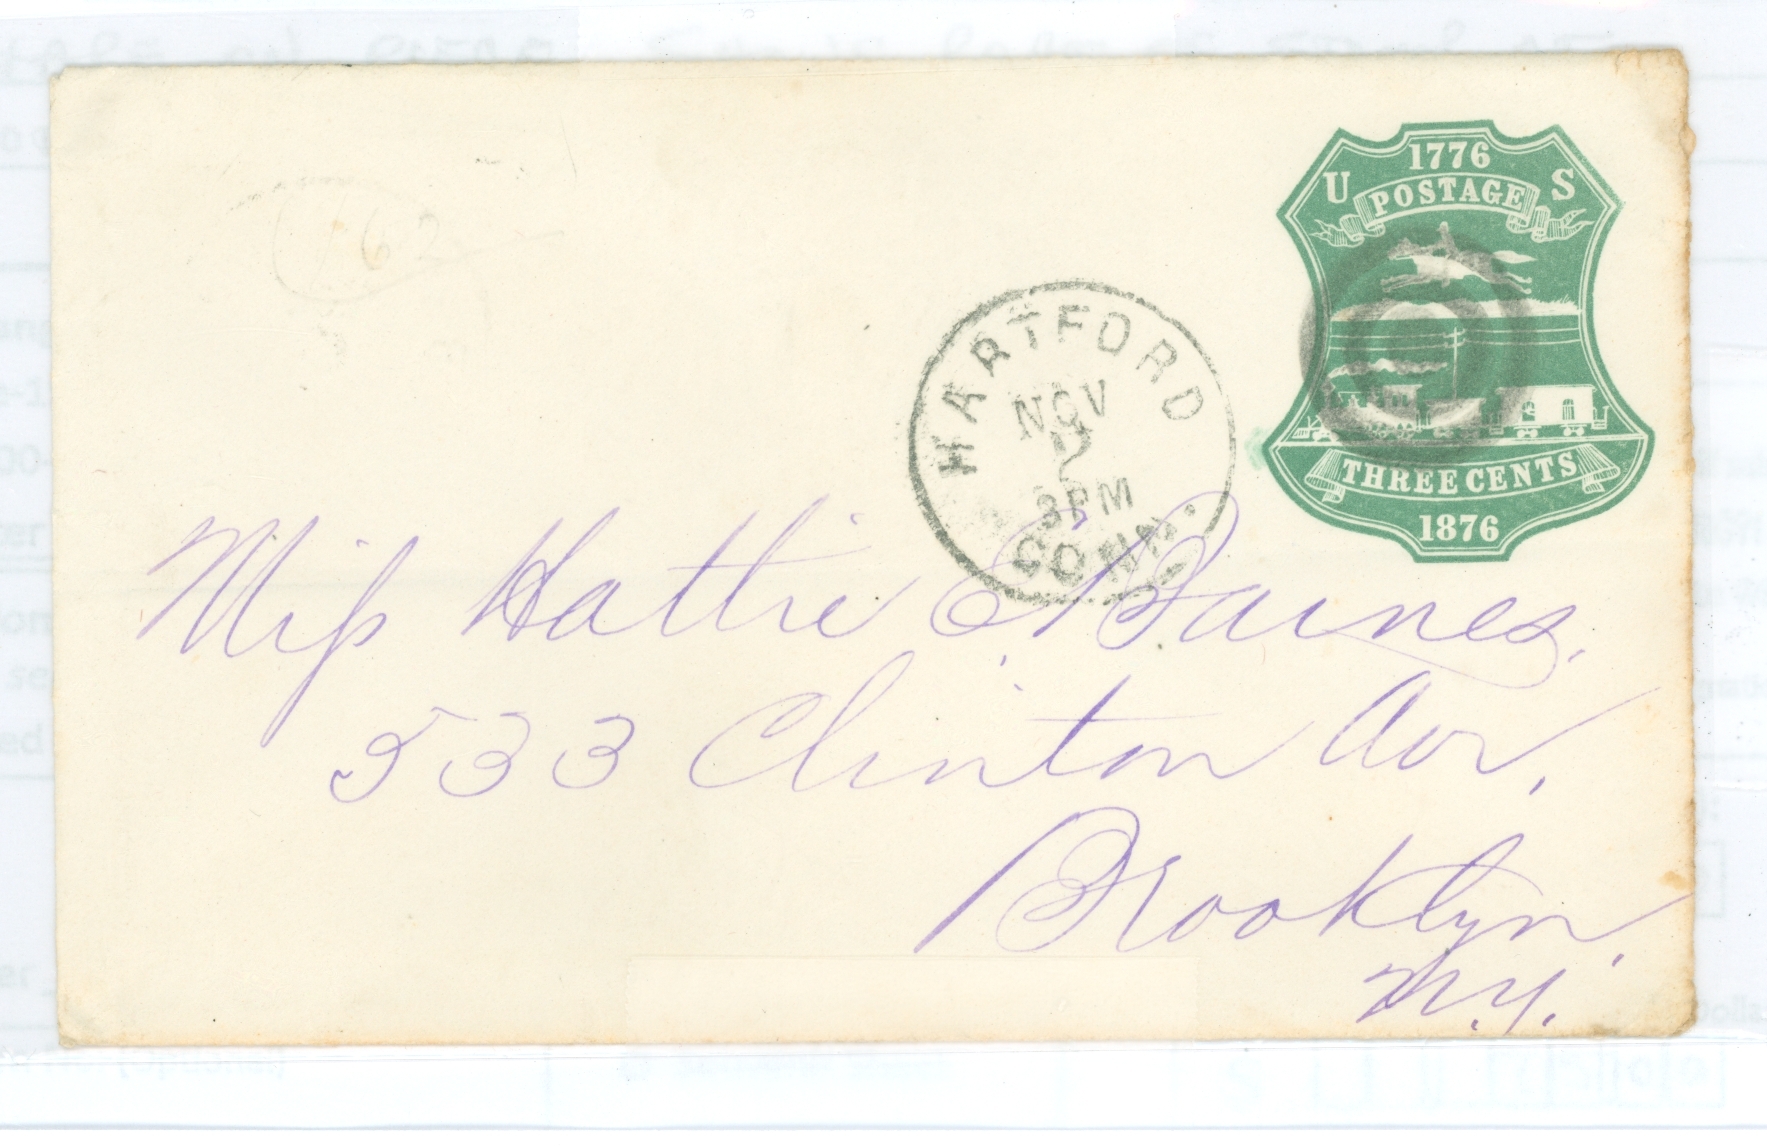 1776
U POSTAGE S
THREE CENTS
1876
HARTFORD
NOV
3PM
CONN.
162
Miss Hattie E. Barnes.
533 Clinton Av.
Brooklyn.
N.Y.